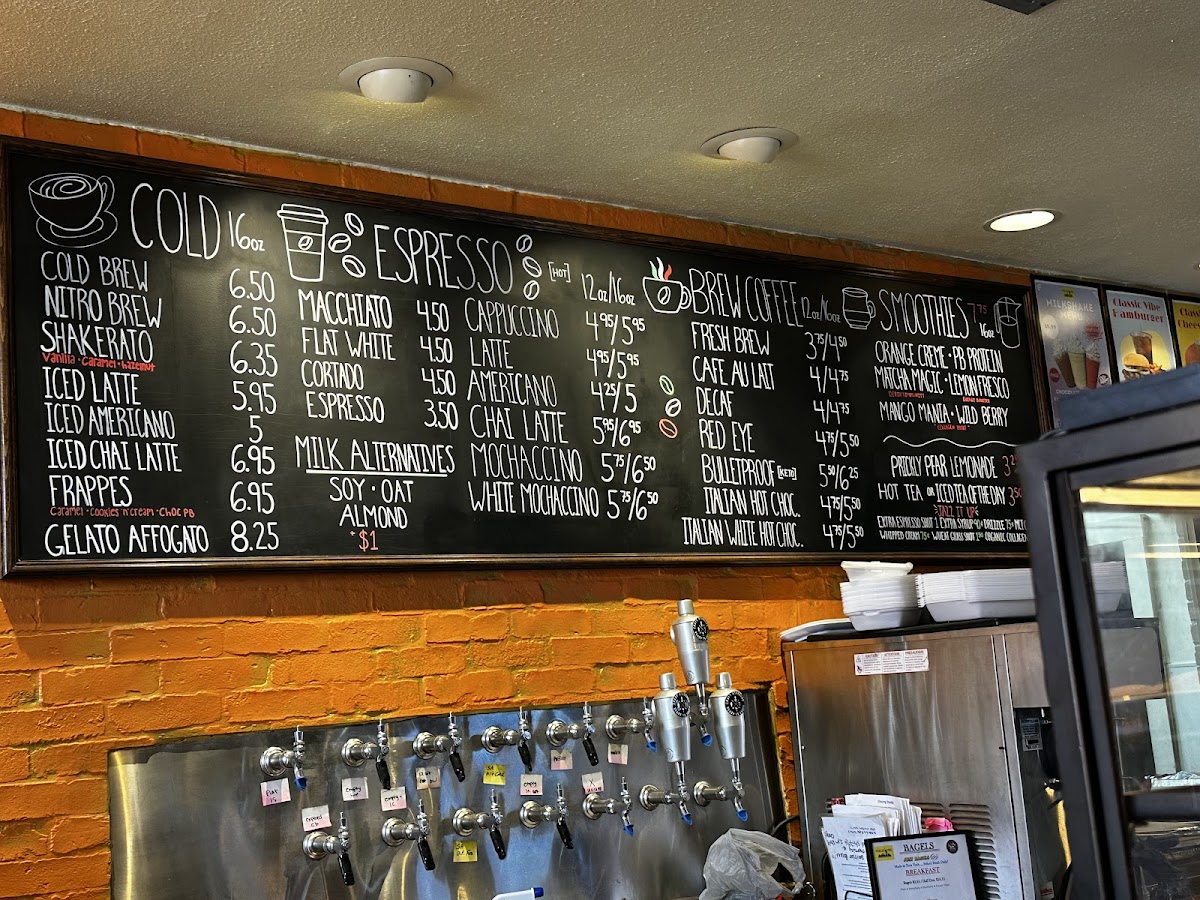 COLD 16oz
COLD BREW 6.50
NITRO BREW 6.50
SHAKERATO 6.35
Vanilla · Caramel · hazelnut
ICED LATTE 5.95
ICED AMERICANO 5
ICED CHAI LATTE 6.95
FRAPPES 6.95
Caramel · Cookies 'n' cream · Choc PB
GELATO AFFOGATO 8.25
ESPRESSO [HOT]
MACCHIATO 4.50
FLAT WHITE 4.50
CORTADO 4.50
ESPRESSO 3.50
MILK ALTERNATIVES
SOY · OAT
ALMOND
+$1
12oz/16oz
CAPPUCCINO 4.95/5.95
LATTE 4.95/5.95
AMERICANO 4.25/5
CHAI LATTE 5.95/6.95
MOCHACCINO 5.75/6.50
WHITE MOCHACCINO 5.75/6.50
BREW COFFEE 12oz/16oz
FRESH BREW 3.75/4.50
CAFE AU LAIT 4/4.75
DECAF 4/4.75
RED EYE 4.75/5.50
BULLETPROOF [KETO] 5.50/6.25
ITALIAN HOT CHOC. 4.75/5.50
ITALIAN WHITE HOT CHOC. 4.75/5.50
SMOOTHIES 7.75 16oz
ORANGE CREME · PB PROTEIN
MATCHA MAGIC · LEMON FRESCO
MANGO MANIA · WILD BERRY
PRICKLY PEAR LEMONADE
HOT TEA OR ICED TEA OF THE DAY 3.50
JAZZ IT UP
EXTRA ESPRESSO SHOT 1 EXTRA SYRUP 90¢ DRIZZLE 75¢
WHIPPED CREAM 75¢ WHEAT GRASS SHOT ORGANIC COLLAGEN
MILKSHAKE
MENU
Classic Vibe
Hamburger
Classic
BAGELS
BREAKFAST